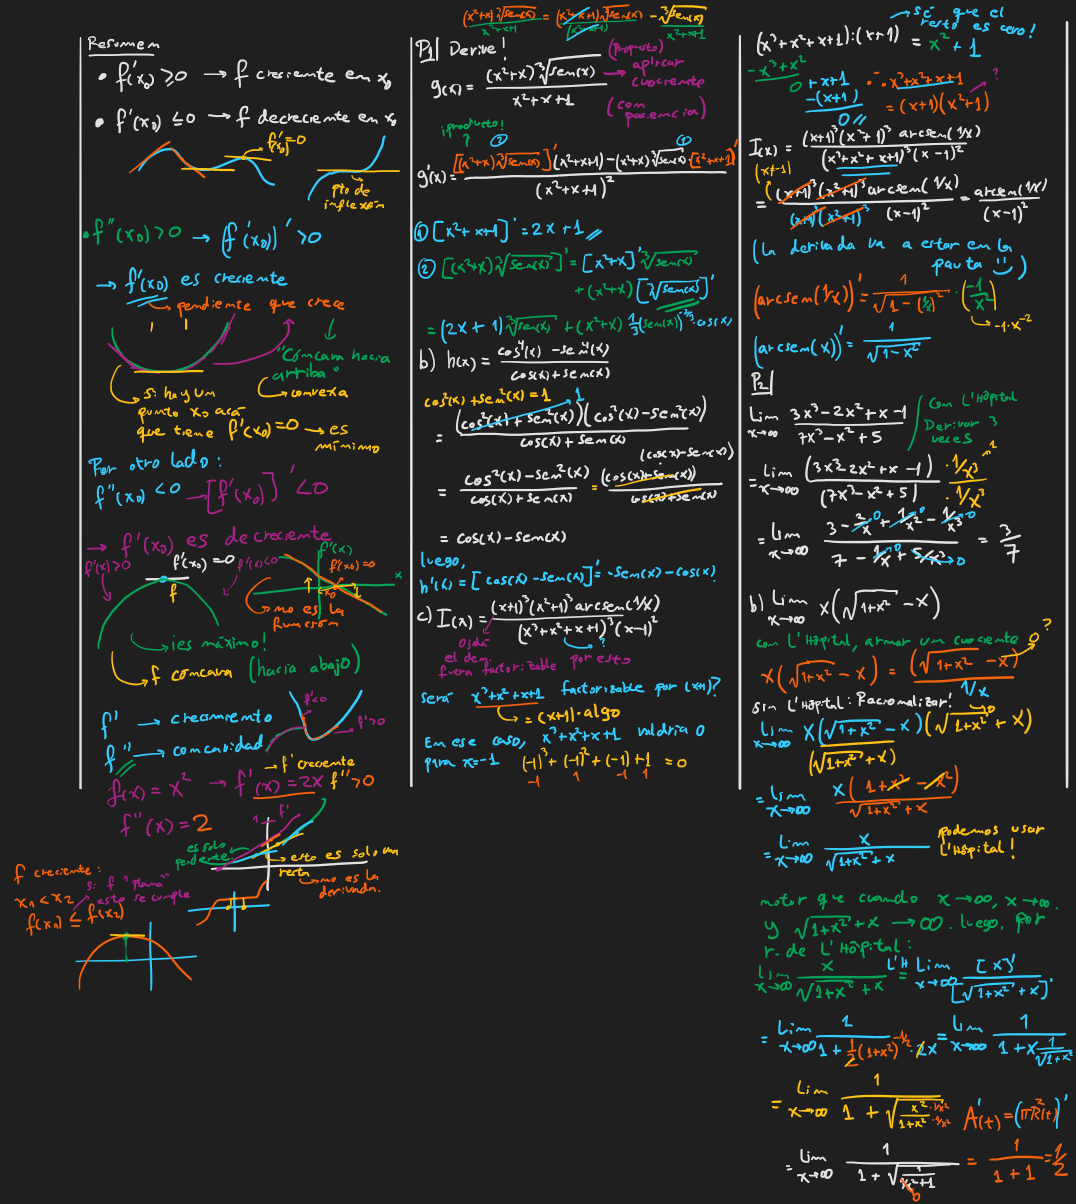 Resumen
• f'(x₀) ≥ 0 → f creciente en x₀
• f'(x₀) ≤ 0 → f decreciente en x₀
f'(x₀)=0
pto de
inflexión
• f''(x₀) > 0 → (f'(x₀))' > 0
→ f'(x₀) es creciente
→ pendiente que crece
"Cóncava hacia
arriba"
→ convexa
→ si hay un
punto x₀ acá
que tiene f'(x₀)=0 → es
mínimo
Por otro lado:
f''(x₀) < 0 → [f'(x₀)]' < 0
→ f'(x₀) es decreciente
f'(x)>0
f'(x₀)=0
f'(x)<0
f
f'(x)
f'(x₀)=0
x
x₀
→ no es la
función
→ ¡es máximo!
→ f cóncava (hacia abajo)
f' → crecimiento
f'' → concavidad
f'<0
f'>0
→ f' creciente
f(x) = x² → f'(x) = 2x f''>0
f''(x) = 2
f'
es solo
pendiente
→ esto es solo una
recta
→ no es la
derivada.
f creciente:
x₁ < x₂
f(x₁) ≤ f(x₂)
si f "plana"
esto se cumple
(x²+x)∛sen(x) / x²+x+1 = (x²+x+1)∛sen(x) / (x²+x+1) - ∛sen(x) / x²+x+1
P₁| Derive!
g(x) = (x²+x)∛sen(x) / x²+x+1
(propuesto)
→ aplicar
cuociente
(con
paciencia)
¡producto!
② ①
g'(x) = [(x²+x)∛sen(x)]'(x²+x+1) - (x²+x)∛sen(x)[x²+x+1]' / (x²+x+1)²
① [x²+x+1]' = 2x+1
② [(x²+x)∛sen(x)]' = [x²+x]'∛sen(x)
+ (x²+x)[∛sen(x)]'
= (2x+1)∛sen(x) + (x²+x) 1/3 (sen(x))^(-2/3) · cos(x)
b) h(x) = cos⁴(x) - sen⁴(x) / cos(x)+sen(x)
cos²(x)+sen²(x) = 1
= (cos²(x)+sen²(x))(cos²(x)-sen²(x)) / cos(x)+sen(x)
1
(cos(x)-sen(x))
= cos²(x)-sen²(x) / cos(x)+sen(x) = (cos(x)+sen(x)) / cos(x)+sen(x)
= cos(x)-sen(x)
luego,
h'(x) = [cos(x)-sen(x)]' = -sen(x)-cos(x)
c) I(x) = (x+1)³(x²+1)³ arcsen(1/x) / (x³+x²+x+1)³(x-1)²
?
Ojalá
el den.
fuera factorizable por esto
será x³+x²+x+1 factorizable por (x+1)?
→ = (x+1)·algo
En ese caso, x³+x²+x+1 valdría 0
para x=-1 (-1)³ + (-1)² + (-1) + 1 = 0
-1 1 -1 1
→ sé que el
resto es cero!
(x³+x²+x+1):(x+1) = x² + 1
-x³+x²
0 +x+1
-(x+1)
0
∴ x³+x²+x+1
= (x+1)(x²+1)
?
I(x) = (x+1)³(x²+1)³ arcsen(1/x) / (x³+x²+x+1)³(x-1)²
(x≠-1)
= (x+1)³(x²+1)³ arcsen(1/x) / (x+1)³(x²+1)³ (x-1)² = arcsen(1/x) / (x-1)²
(la derivada va a estar en la
pauta)
(arcsen(1/x))' = 1 / √(1-(1/x)²) · (-1/x²)
→ -1·x⁻²
(arcsen(x))' = 1 / √(1-x²)
P₂|
Lim x→∞ 3x³-2x²+x-1 / 7x³-x²+5
Con L'Hôpital
Derivar 3
veces
= Lim x→∞ (3x³-2x²+x-1) / (7x³-x²+5) · 1/x³ / · 1/x³
1
= Lim x→∞ 3 - 2/x + 1/x² - 1/x³ / 7 - 1/x + 5/x³ = 3/7
0 0 0 0 0
b) Lim x→∞ x(√(1+x²) - x)
con L'Hôpital, armar un cuociente
0 ?
x(√(1+x²) - x) = (√(1+x²) - x) / 1/x
0
sin L'Hôpital: Racionalizar!
Lim x→∞ x(√(1+x²) - x)(√(1+x²) + x) / (√(1+x²) + x)
= Lim x→∞ x(1+x²-x²) / √(1+x²) + x
= Lim x→∞ x / √(1+x²) + x
podemos usar
L'Hôpital!
notar que cuando x→∞, x→∞.
y √(1+x²) + x → ∞. luego, por
r. de L'Hôpital:
Lim x→∞ x / √(1+x²) + x =L'H Lim x→∞ [x]' / [√(1+x²) + x]'
= Lim x→∞ 1 / 1 + 1/2 (1+x²)^(-1/2) · 2x = Lim x→∞ 1 / 1 + x 1/√(1+x²)
= Lim x→∞ 1 / 1 + √(x²/(1+x²) · 1/x² / · 1/x²)
A'(t) = (πR²(t))'
= Lim x→∞ 1 / 1 + √(1/(1/x²+1)) = 1 / 1+1 = 1/2
0